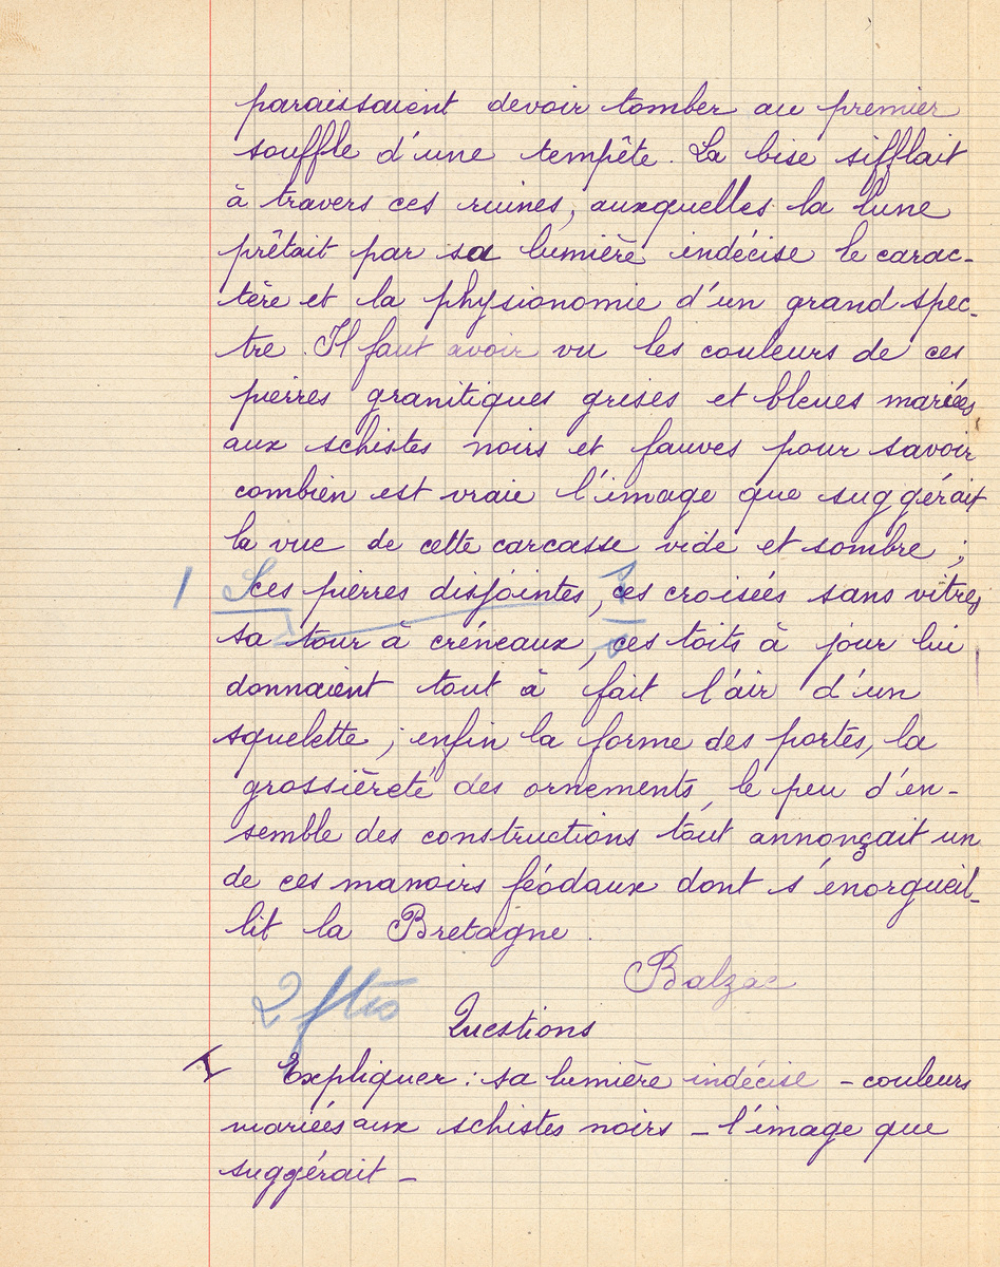 paraissaient devoir tomber au premier
souffle d'une tempête. La bise sifflait
à travers ces ruines, auxquelles la lune
prêtait par sa lumière indécise le carac-
tère et la physionomie d'un grand spec-
tre. Il faut avoir vu les couleurs de ces
pierres granitiques grises et bleues mariées
aux schistes noirs et fauves pour savoir
combien est vraie l'image que suggérait
la vue de cette carcasse vide et sombre ;
1 Ses pierres disjointes, ses croisées sans vitres
sa tour à créneaux, ses toits à jour lui
donnaient tout à fait l'air d'un
squelette ; enfin la forme des portes, la
grossièreté des ornements, le peu d'en-
semble des constructions tout annonçait un
de ces manoirs féodaux dont s'énorgueil-
lit la Bretagne.
Balzac
2 ftes
Questions
I Expliquer : sa lumière indécise - couleurs
mariées aux schistes noirs - l'image que
suggérait -